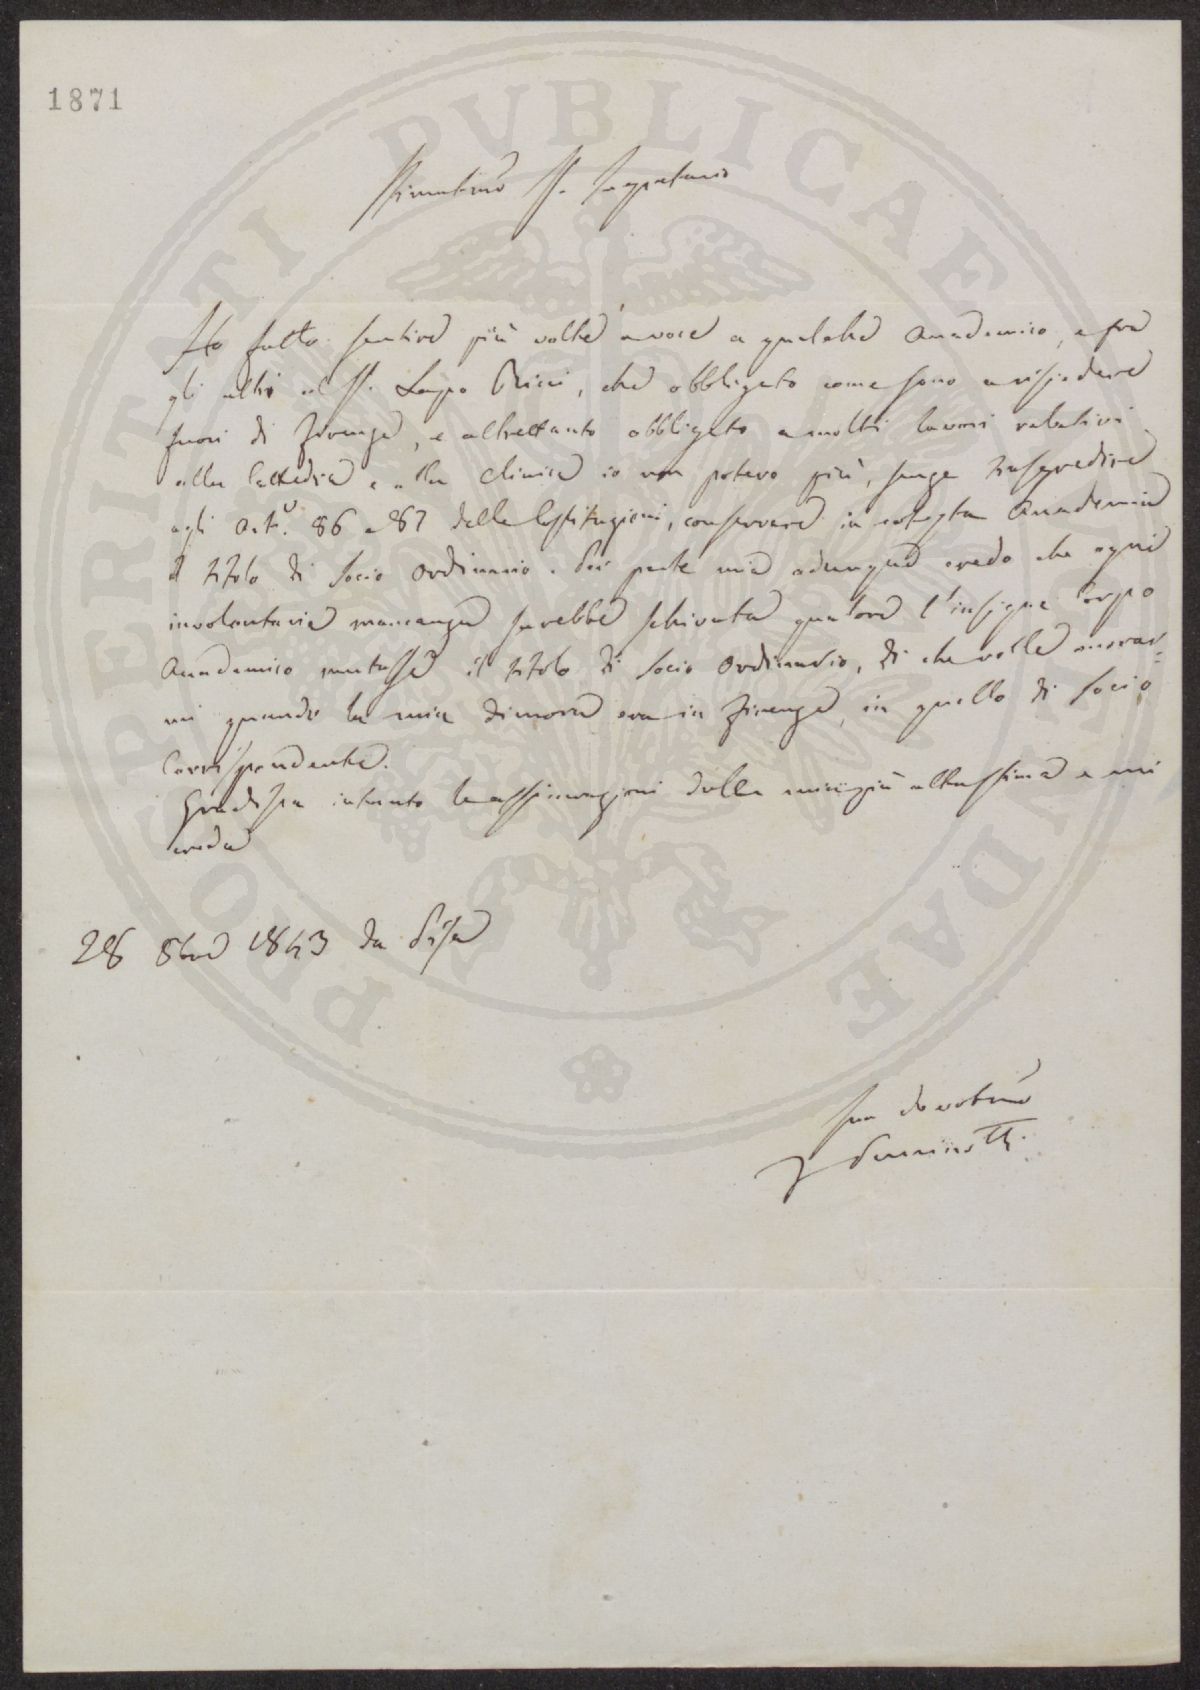 1871
PROSPERITATI PVBLICAE AVGENDAE
Stimatmo Sr. Segretario
Ho fatto sentire più volte a voce a qualche Accademico, e fra
gli altri al Sr. Lapo Ricci, che obbligato come sono a risiedere
fuori di Firenze, e altrettanto obbligato a molti lavori relativi
alla Cattedra e alla Clinica io non potevo più, senza trasgredire
agli Arti. 86 e 87 delle Costituzioni, conservare in cotesta Accademia
il titolo di Socio Ordinario. Per parte mia adunque credo che ogni
involontaria mancanza sarebbe schivata qualora l'insigne Corpo
Accademico mutasse il titolo di Socio Ordinario, di che volle onorar=
mi quando la mia dimora era in Firenze, in quello di Socio
Corrispondente.
Gradisca intanto le assicurazioni della mia più alta stima e mi
creda
28 8bre 1843 da Pisa
Suo devotmo